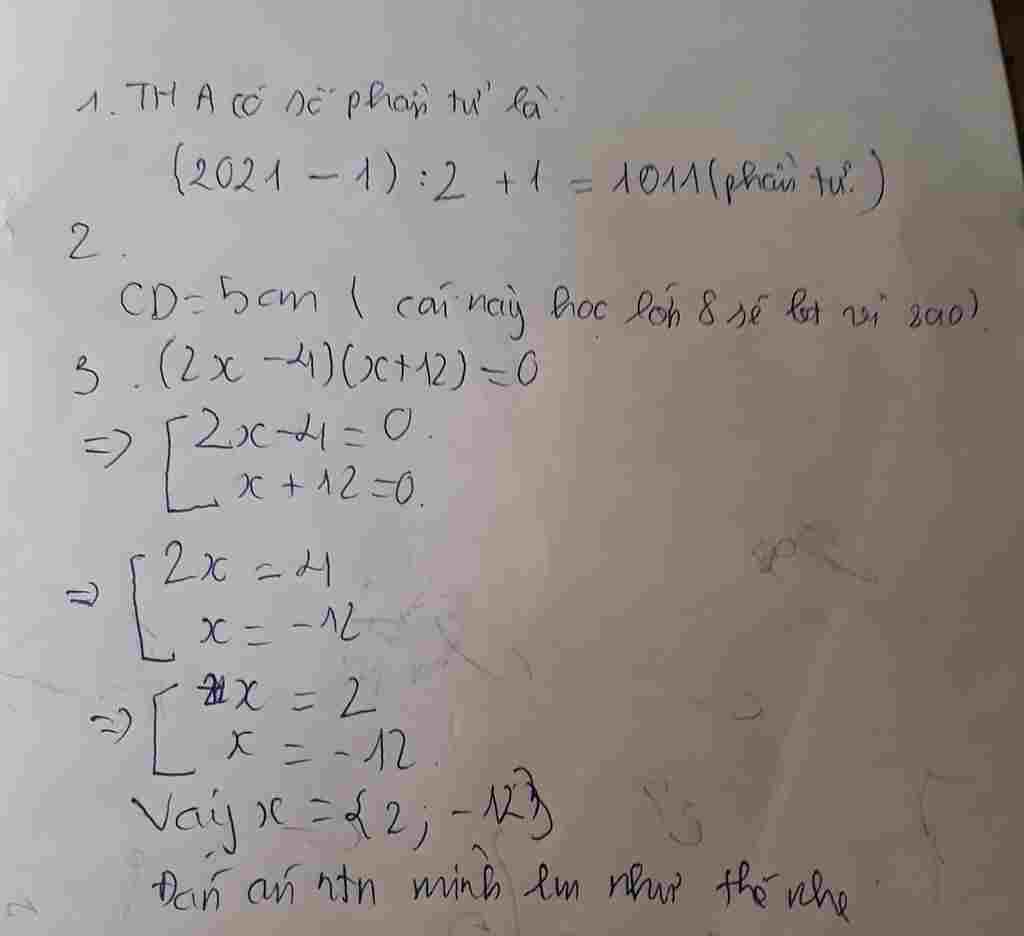 1. TH A có số phần tử là:
(2021 - 1) : 2 + 1 = 1011 (phần tử)
2.
CD = 5cm ( cái này học lớp 8 sẽ vì sao)
3. (2x - 4)(x+12) = 0
=> [ 2x - 4 = 0
x + 12 = 0.
=> [ 2x = 4
x = -12
=> [ x = 2
x = -12.
Vậy x = {2; -12}
Đáp án ntn mình như thế nhe